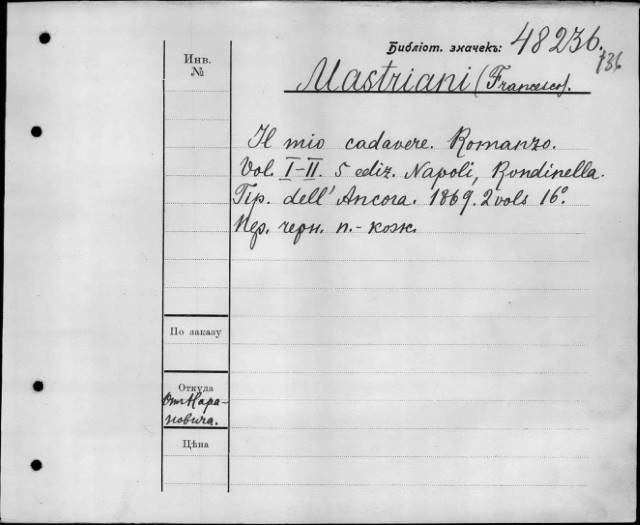 Библіот. значекъ: 48236.
136
Инв.
№
Mastriani (Francesco).
Il mio cadavere. Romanzo.
Vol. I-II. 5 ediz. Napoli, Rondinella.
Tip. dell' Ancora. 1869. 2 vols 16°.
Пер. черн. п.-кож.
По заказу
Откуда
От Кара-
новича.
Цѣна